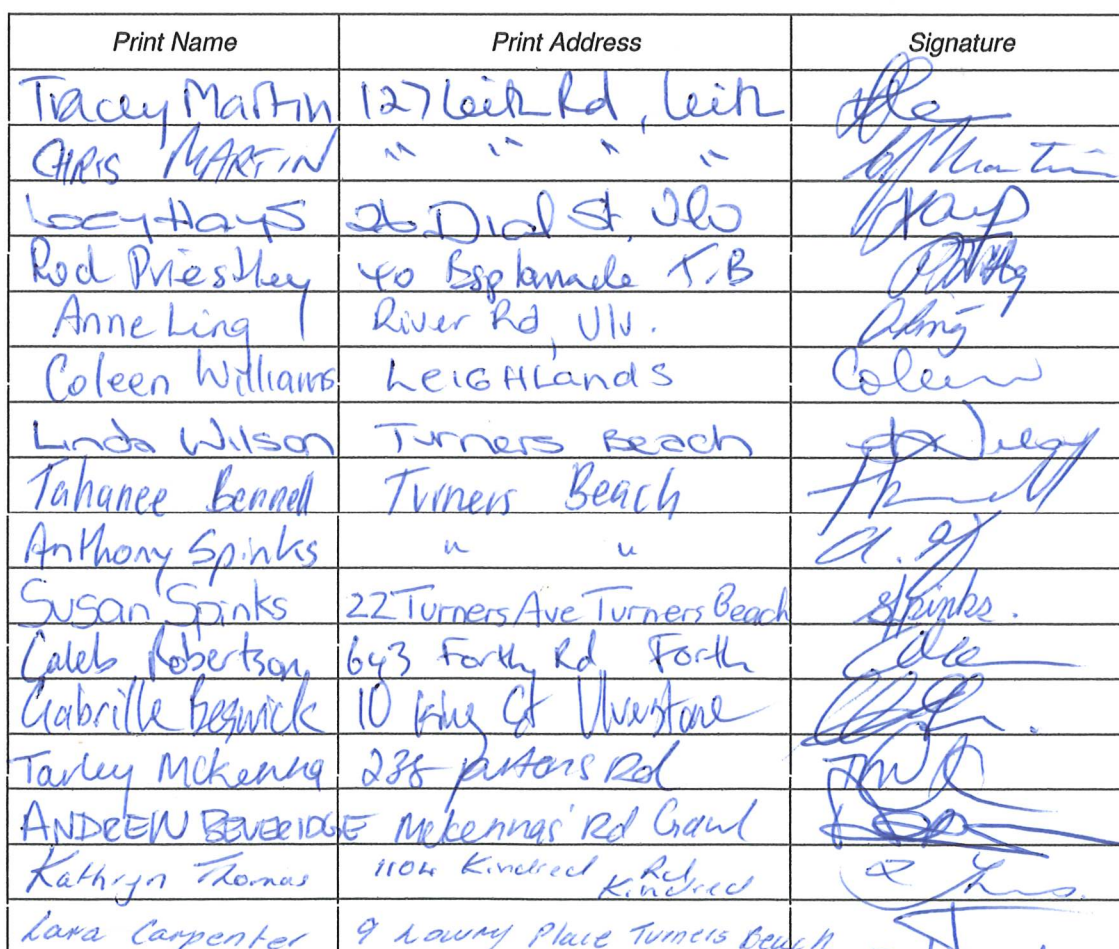 Print Name Print Address Signature
Tracey Martin 127 Leith Rd, Leith
CHRIS MARTIN " " " "
Locy Hays 26 Dial St, Ulv
Rod Priestley 40 Esplanade T.B
Anne Ling River Rd, Ulv. Aling
Coleen Williams LEIGHLandS Coleen
Linda Wilson Turners Beach
Tahanee Bennell Turners Beach
Anthony Spinks " "
Susan Spinks 22 Turners Ave Turners Beach SSpinks.
Caleb Robertson 643 Forth Rd Forth
Gabrille Beswick 10 King St Ulverstone
Tarley McKenna Rd
ANDREW BEVERIDGE McKennas' Rd Gawl
Kathryn Thomas Kindred Rd
Kindred
Lara Carpenter 9 Lowry Place Turners Beach